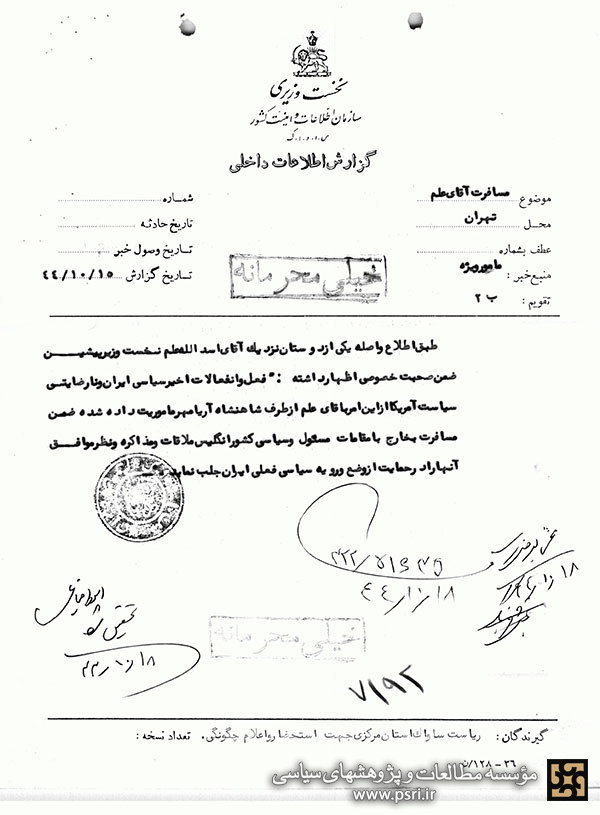 نخست وزیری
سازمان اطلاعات و امنیت کشور
س.ا.و.ا.ک
گزارش اطلاعات داخلی
موضوع مسافرت آقای علم
محل تهران
عطف بشماره
منبع خبر: مامور ویژه
تقویم: ب ۲
شماره
تاریخ حادثه
تاریخ وصول خبر
تاریخ گزارش ۴۴/۱۰/۱۵
خیلی محرمانه
طبق اطلاع واصله یکی از دوستان نزدیک آقای اسد الله علم نخست وزیر پیشین
ضمن صحبت خصوصی اظهار داشته : "فعل و انفعالات اخیر سیاسی ایران و نارضایتی
سیاست آمریکا از این امر با آقای علم از طرف شاهنشاه آریامهر ماموریت داده شده ضمن
مسافرت بخارج با مقامات مسئول وسیاسی کشور انگلیس ملاقات ومذاکره ونظر موافق
آنها را در حمایت از وضع و رویه سیاسی فعلی ایران جلب نماید
۴۴/۱۰/۱۸
خیلی محرمانه
۷۱۹۲
گیرندگان: ریاست ساواک استان مرکزی جهت استحضار و اعلام چگونگی. تعداد نسخه:
۳۶-۱۲۸/ن
مؤسسه مطالعات و پژوهشهای سیاسی
www.psri.ir